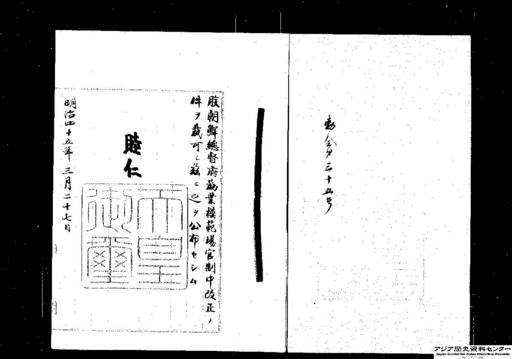 勅令第三十五号
朕朝鮮總督府勸業模範場官制中改正ノ
件ヲ裁可シ茲ニ之ヲ公布セシム
睦仁
天皇
御璽
明治四十五年三月二十七日
アジア歴史資料センター
Japan Center for Asian Historical Records